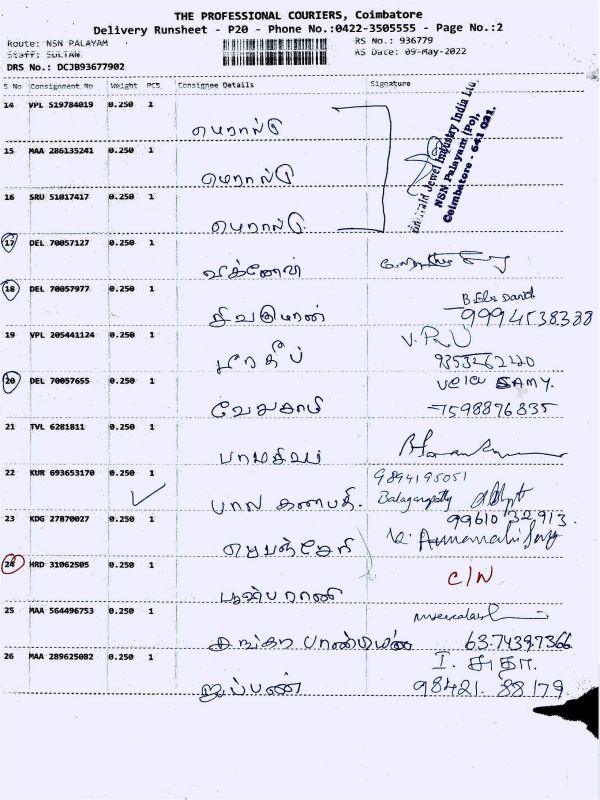 THE PROFESSIONAL COURIERS, Coimbatore
Delivery Runsheet - P20 - Phone No.:0422-3505555 - Page No.:2
Route: NSN PALAYAM RS No.: 936779
Staff: SULTAN RS Date: 09-May-2022
DRS No.: DCJB93677902
S No Consignment No Weight PCS Consignee Details Signature
14 VPL 519784019 0.250 1
மெரால்டு
15 MAA 286135241 0.250 1
மெரால்டு
Jewel Industry India Ltd.
NSN Palayam (Po),
Coimbatore - 641 031.
16 SRU 51017417 0.250 1
மெரால்டு
17 DEL 70057127 0.250 1
விக்னேஷ்
18 DEL 70057977 0.250 1
சிவகுமரன் 9994538388
19 VPL 205441124 0.250 1
பிரதீப் 9353262220
20 DEL 70057655 0.250 1 Velu SAMY.
வேலுசாமி 7598876835
21 TVL 6281811 0.250 1
பாமசிவம்
22 KUR 693653170 0.250 1 9894195051
பால கணபதி. Balaganapathy
23 KDG 27870027 0.250 1 99610 32913.
24 HRD 31062505 0.250 1 C/N
புஷ்பராணி
25 MAA 564496753 0.250 1
சங்கர பாண்டியன் 6374397366
26 MAA 289625082 0.250 1 I. சுதா.
ஐயப்பன் 98421. 88179